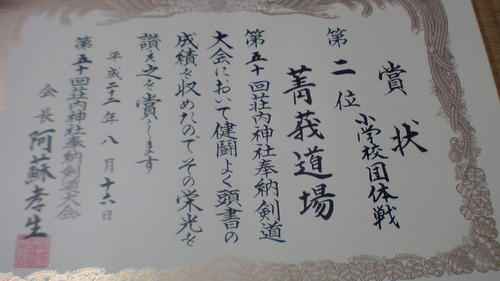 賞状
小学校団体戦
第二位
菁莪道場
第五十回荘内神社奉納剣道
大会において健闘よく頭書の
成績を収めたのでその栄光を
讃え之を賞します
平成二十三年八月十六日
第五十回荘内神社奉納剣道大会
会長 阿蘇孝生